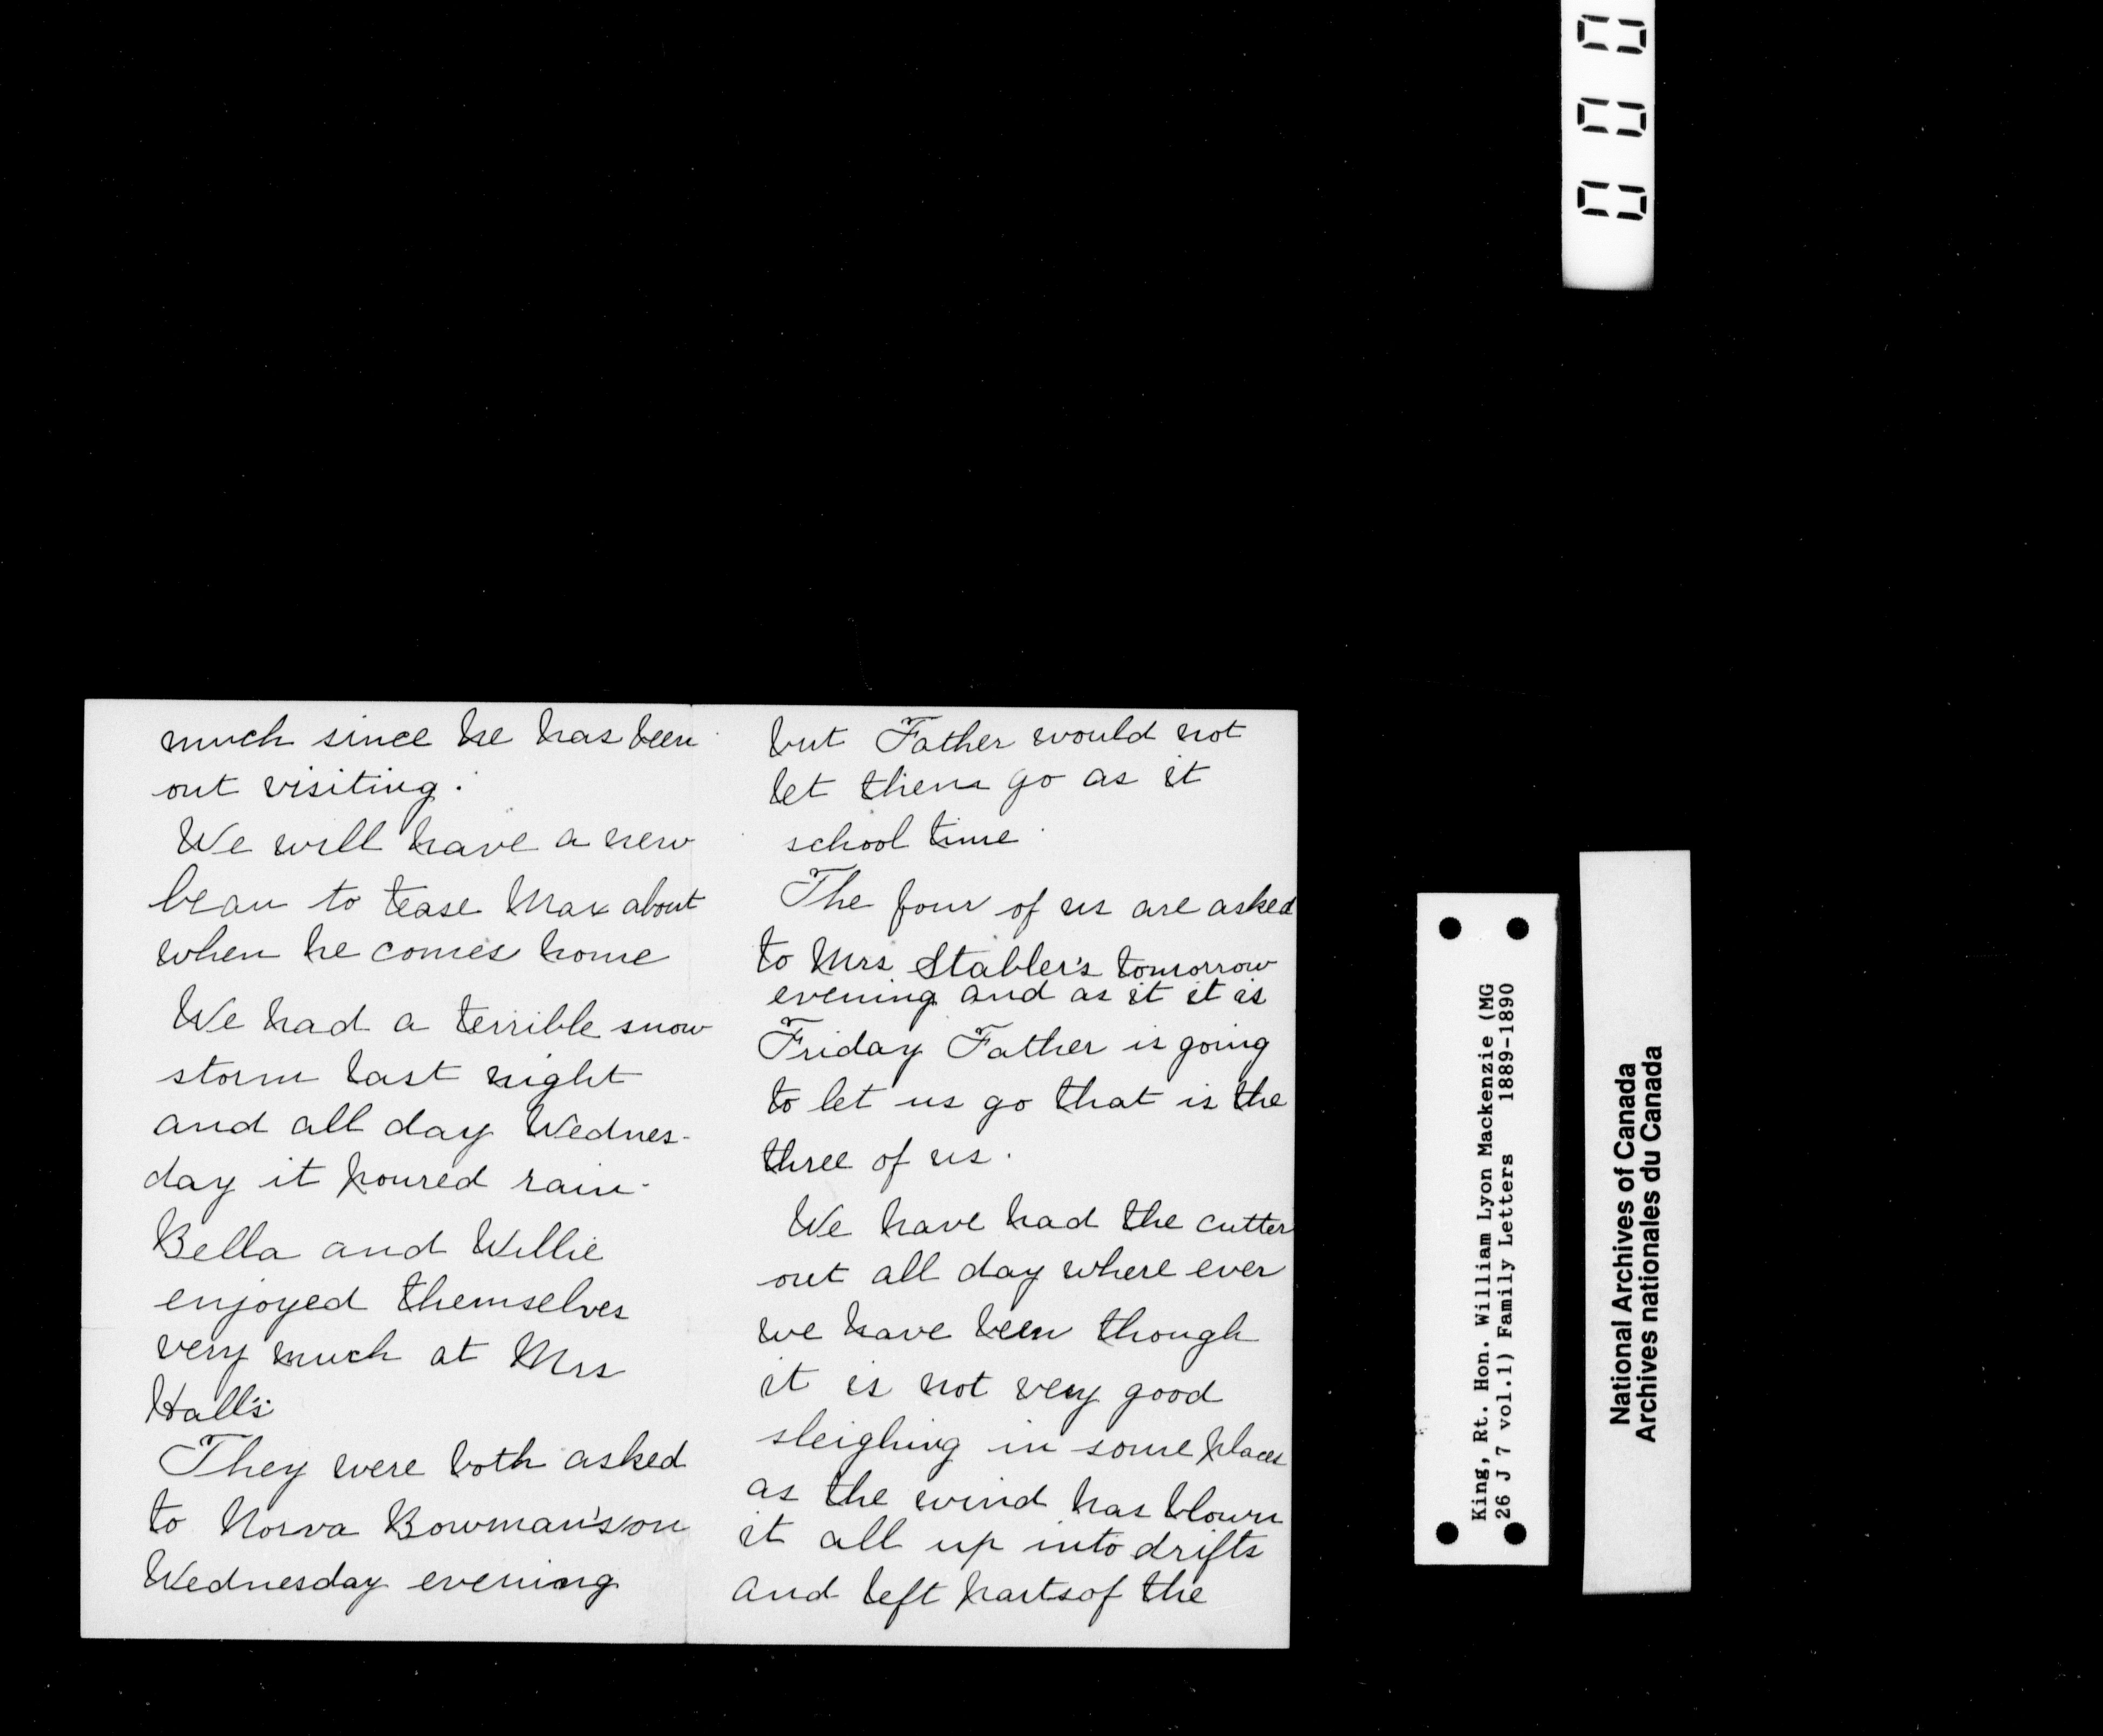 much since he has been
out visiting.
We will have a new
beau to tease Max about
when he comes home
We had a terrible snow
storm last night
and all day Wednes-
day it poured rain.
Bella and Willie
enjoyed themselves
very much at Mrs
Hall's
They were both asked
to Norva Bowman's on
Wednesday evening
but Father would not
let them go as it
school time.
The four of us are asked
to Mrs Stabler's tomorrow
evening and as it it is
Friday Father is going
to let us go that is the
three of us.
We have had the cutter
out all day where ever
we have been though
it is not very good
sleighing in some places
as the wind has blown
it all up into drifts
and left parts of the
King, Rt. Hon. William Lyon Mackenzie (MG
26 J 7 vol.1) Family Letters 1889-1890
National Archives of Canada
Archives nationales du Canada
000